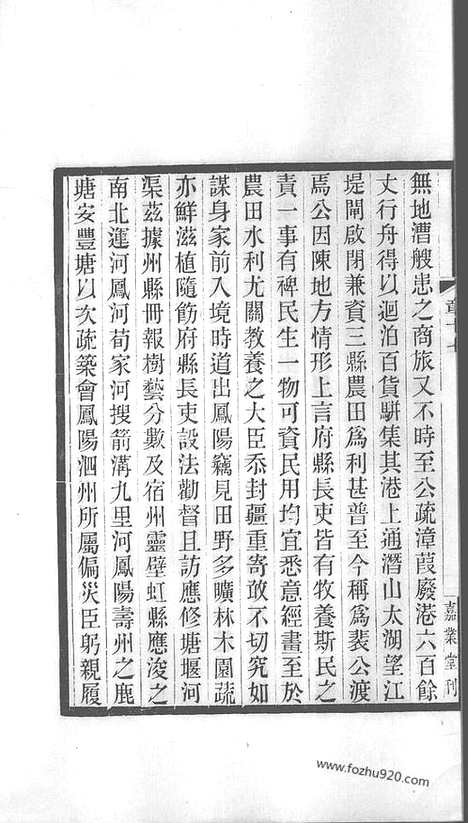 無地漕艘患之商旅又不時至公疏漳葭廢港六百餘
丈行舟得以迴泊百貨駢集其港上通潛山太湖望江
堤閘啟閉兼資三縣農田為利甚普至今稱為裴公渡
焉公因陳地方情形上言府縣長吏皆有牧養斯民之
責一事有裨民生一物可資民用均宜悉意經畫至於
農田水利尤關教養之大臣忝封疆重寄敢不切究如
謀身家前入境時道出鳳陽竊見田野多曠林木園蔬
亦鮮滋植隨飭府縣長吏設法勸督且訪應修塘堰河
渠茲據州縣冊報樹藝分數及宿州靈壁虹縣應浚之
南北運河鳳河荀家河搜箭溝九里河鳳陽壽州之鹿
塘安豐塘以次疏築會鳳陽泗州所屬偏災臣躬親履
嘉業堂刊
www.fozhu920.com